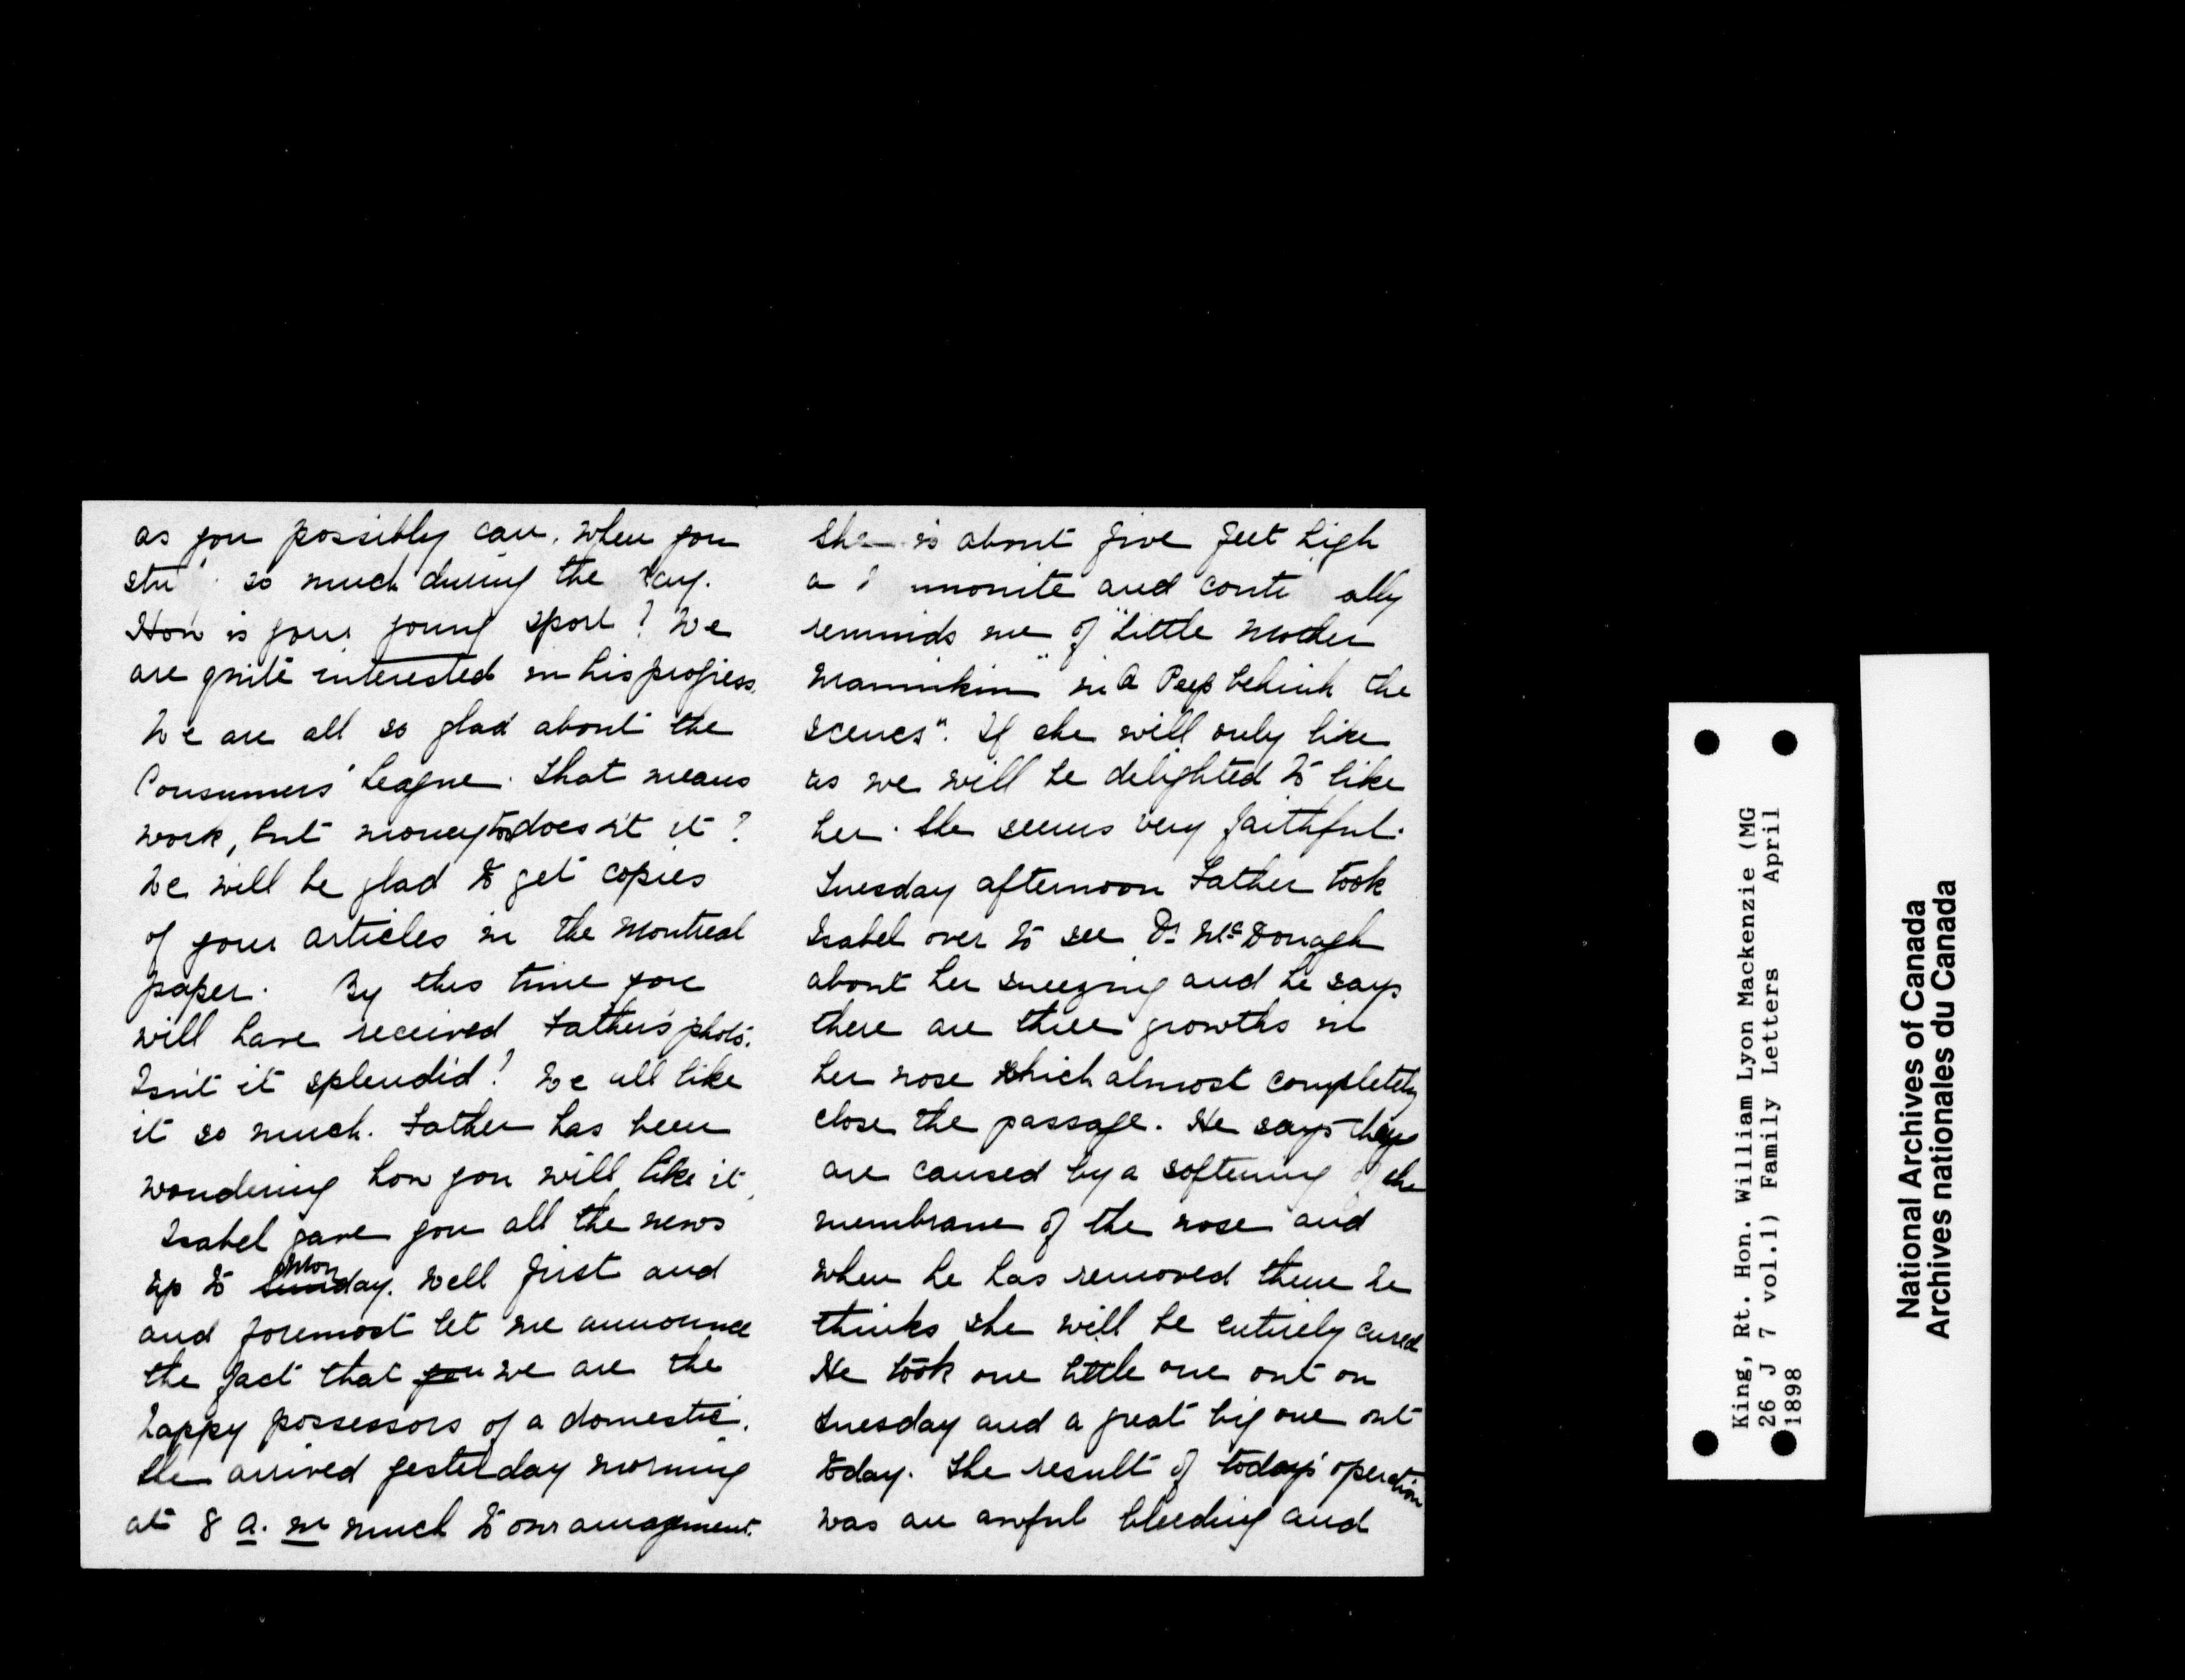 as you possibly can, when you
stu so much during the day.
How is your young sport? We
are quite interested in his progress.
We are all so glad about the
Consumers' League. That means
work, but money too doesn't it?
We will be glad to get copies
of your articles in the Montreal
paper. By this time you
will have received Father's photo.
Isn't it splendid! We all like
it so much. Father has been
wondering how you will like it.
Isabel gave you all the news
up to Sunday. Mon Well first and
and foremost let me announce
the fact that you we are the
happy possessors of a domestic.
She arrived yesterday morning
at 8 a. m much to our amazement.
She is about five feet high
a and ally
reminds me of "Little Mother
Mannikin" in "A Peep behind the
Scenes". If she will only like
us we will be delighted to like
her. She seems very faithful.
Tuesday afternoon Father took
Isabel over to see Dr McDonagh
about her sneezing and he says
there are three growths in
her nose which almost completely
close the passage. He says they
are caused by a softening of the
membrane of the nose and
when he has removed them he
thinks she will be entirely cured
He took one little one out on
Tuesday and a great big one out
today. The result of today's operation
was an awful bleeding and
King, Rt. Hon. William Lyon Mackenzie (MG
26 J 7 vol.1) Family Letters April
1898
National Archives of Canada
Archives nationales du Canada